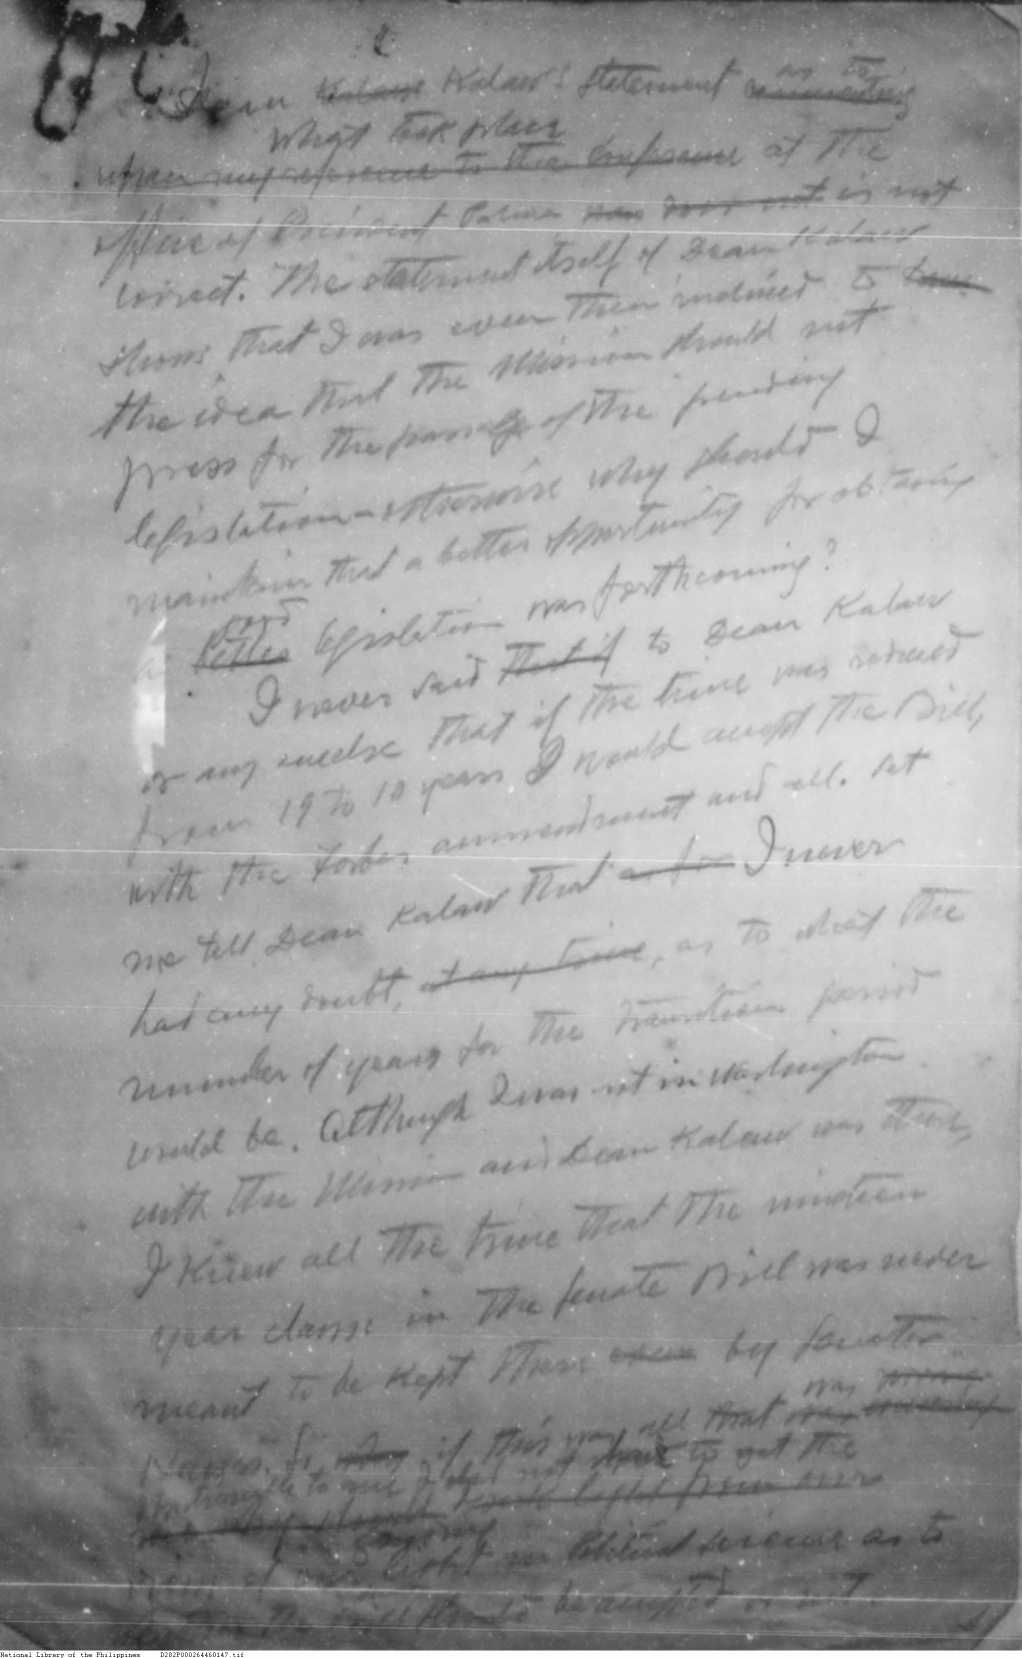 Dean Kalaw Kalaw's statement as to commenting
what took place
upon my reference to the conference at the
office of President Palma was does not is not
correct. The statement itself of Dean Kalaw
shows that I was even then inclined to have
the idea that the Mission should not
press for the passage of the pending
legislation - otherwise why should I
maintain that a better opportunity for obtaining
good
a better legislation was forthcoming?
I never said that if to Dean Kalaw
or any onedse that if the time was reduced
from 19 to 10 years I would accept the Bill,
with the Forbes ammendment and all. Let
me tell Dean Kalaw that as for I never
had any doubt, at any time, as to what the
number of years for the transition period
would be. Although I was not in Washington
with the Mission and Dean Kalaw was there,
I knew all the time that the nineteen
year clause in the Senate Bill was never
meant to be kept there even by Senator
was
if this was all that was
to me I did not have to get the
light from our
light in Political Science as to
the Bill should be accepted or not.
National Library of the Philippines D282P000264460147.tif